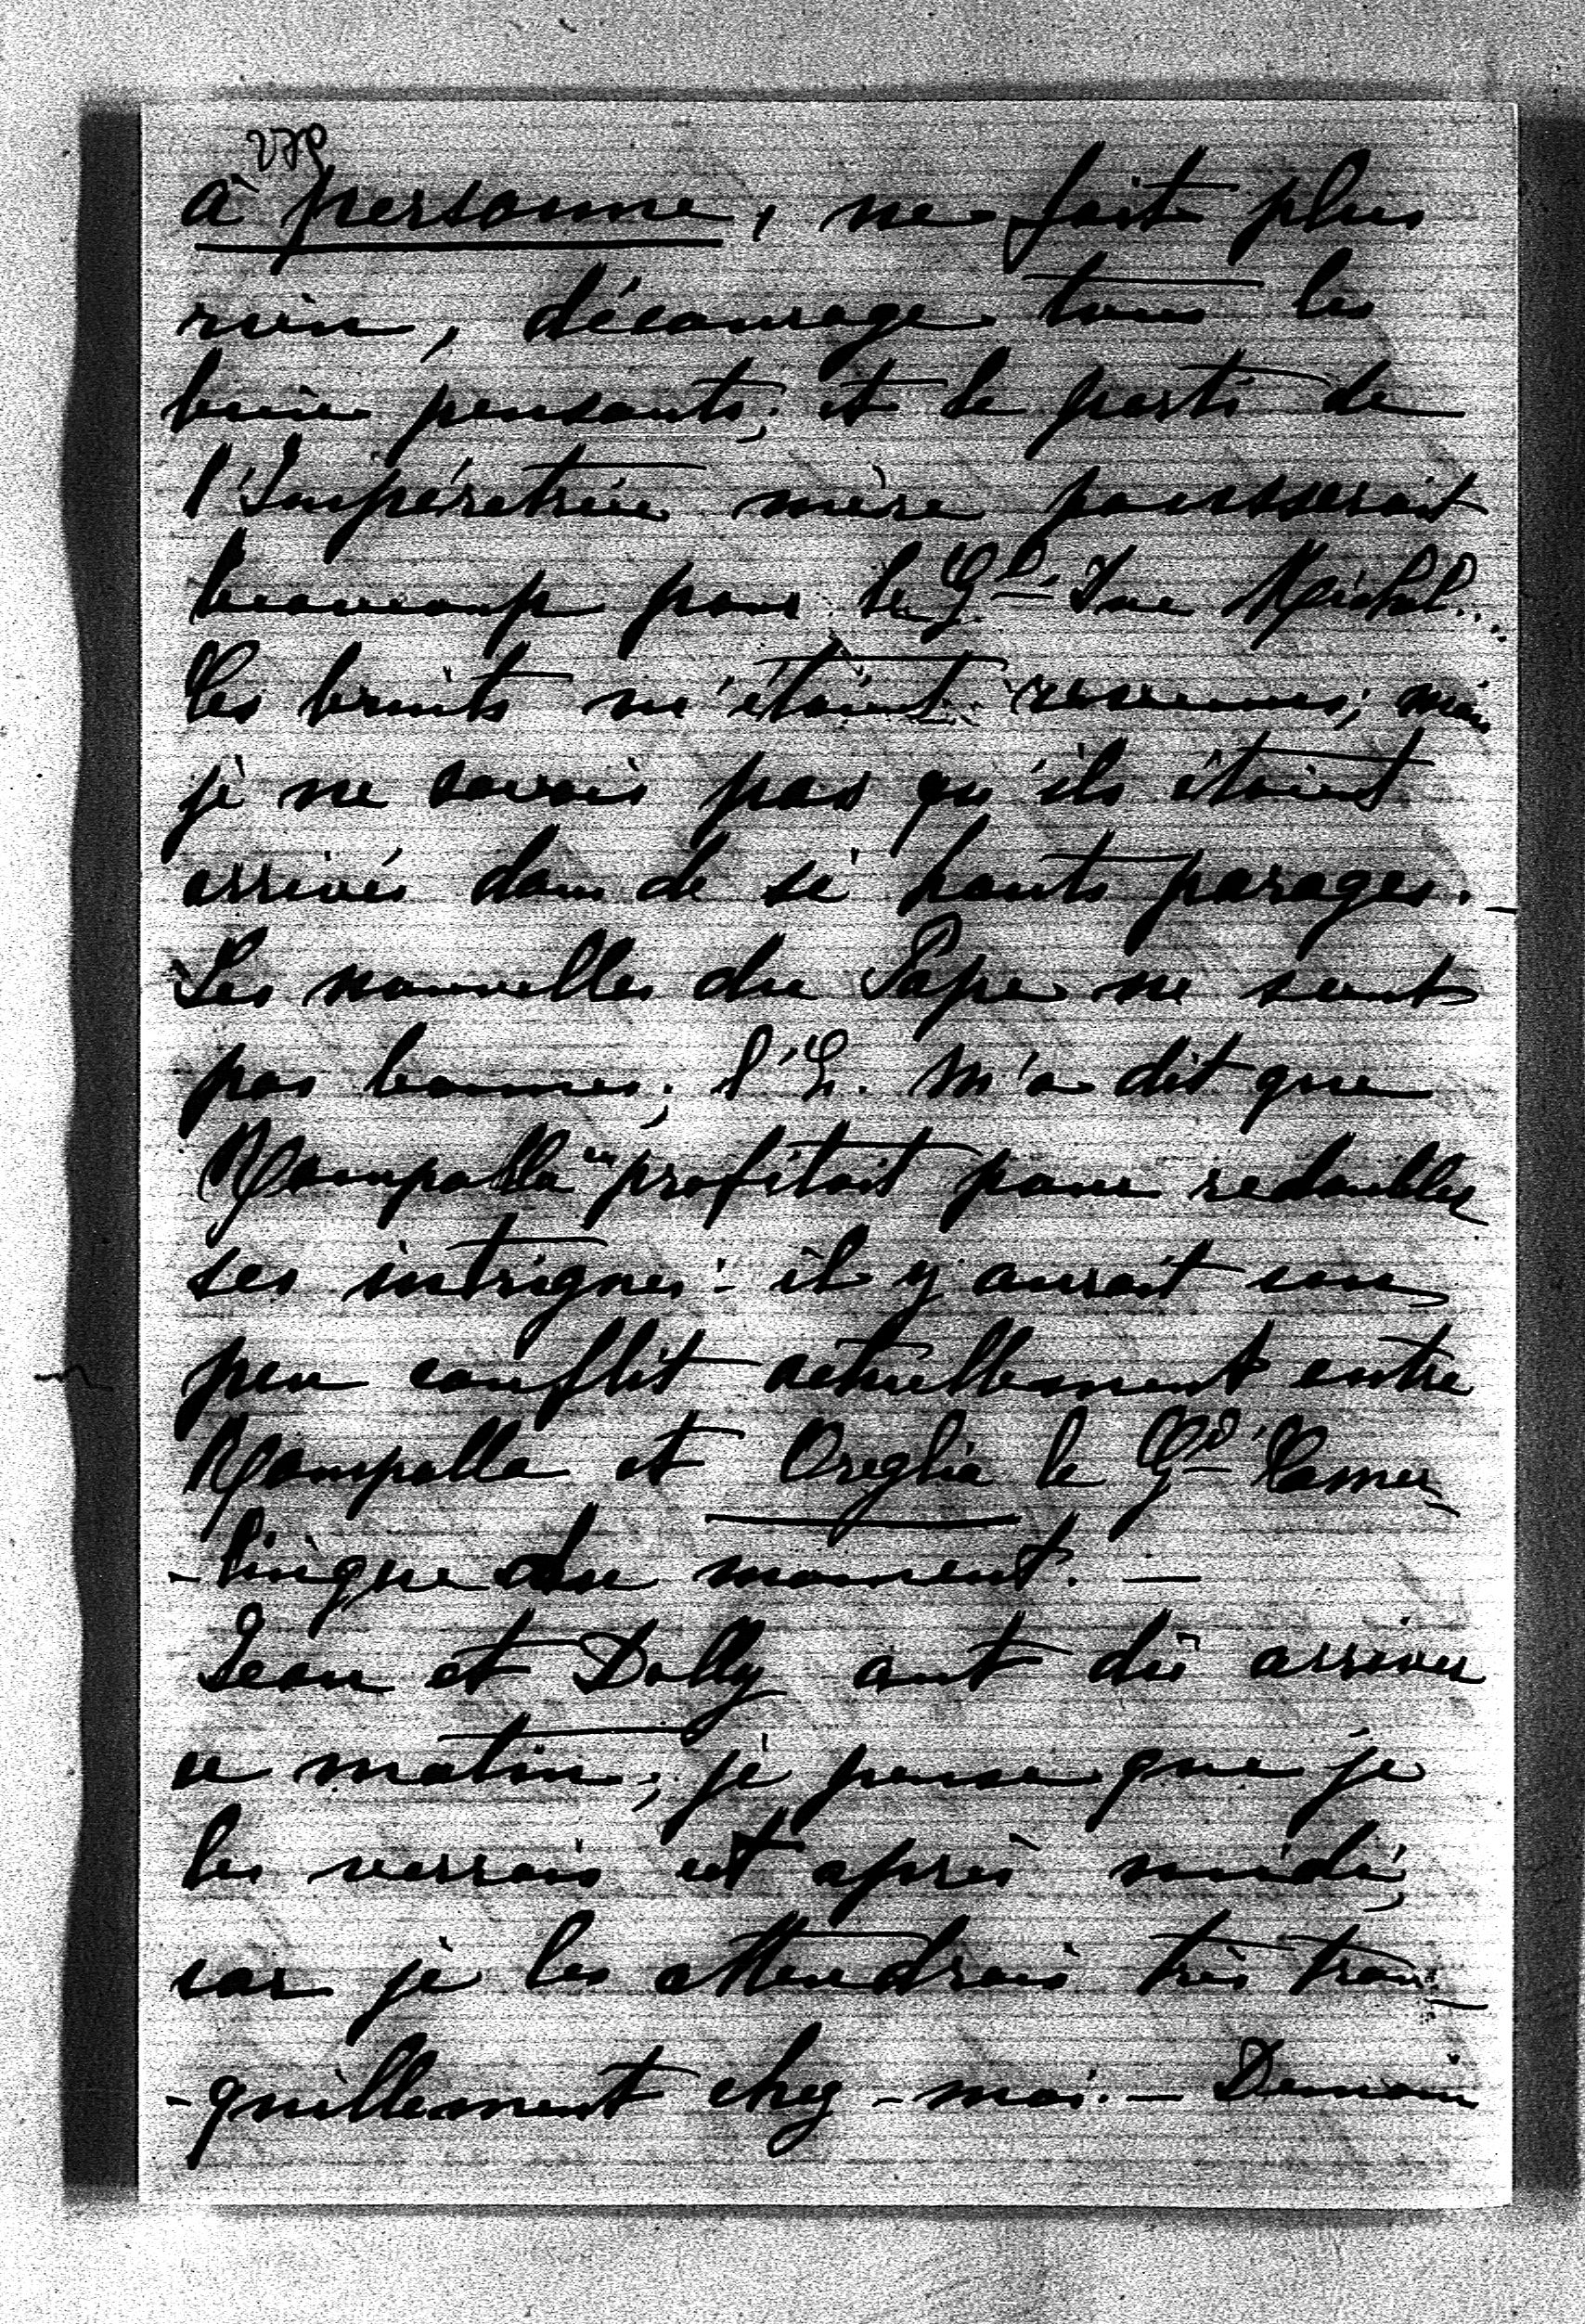 279
à personne, ne fait plus
rien, décourage tous les
bien pensants; et le parti de
l'Impératrice mère pousserait
beaucoup pour le Gd. Duc Michel...
Ces bruits m'étaient revenus; mais
je ne savais pas qu'ils étaient
arrivés dans de si hauts parages. _
Les nouvelles du Pape ne sont
pas bonnes; l'E. m'a dit que
Rampolla en profitait pour redoubler
ses intrigues: il y aurait un
peu conflit actuellement entre
Rampolla et Oreglia le Gd. Camer-
-lingue du moment. —
Jean et Dolly ont dû arriver
ce matin; je pense que je
les verrais cet après midi,
car je les attendrais très tran-
-quillement chez-moi. — Demain